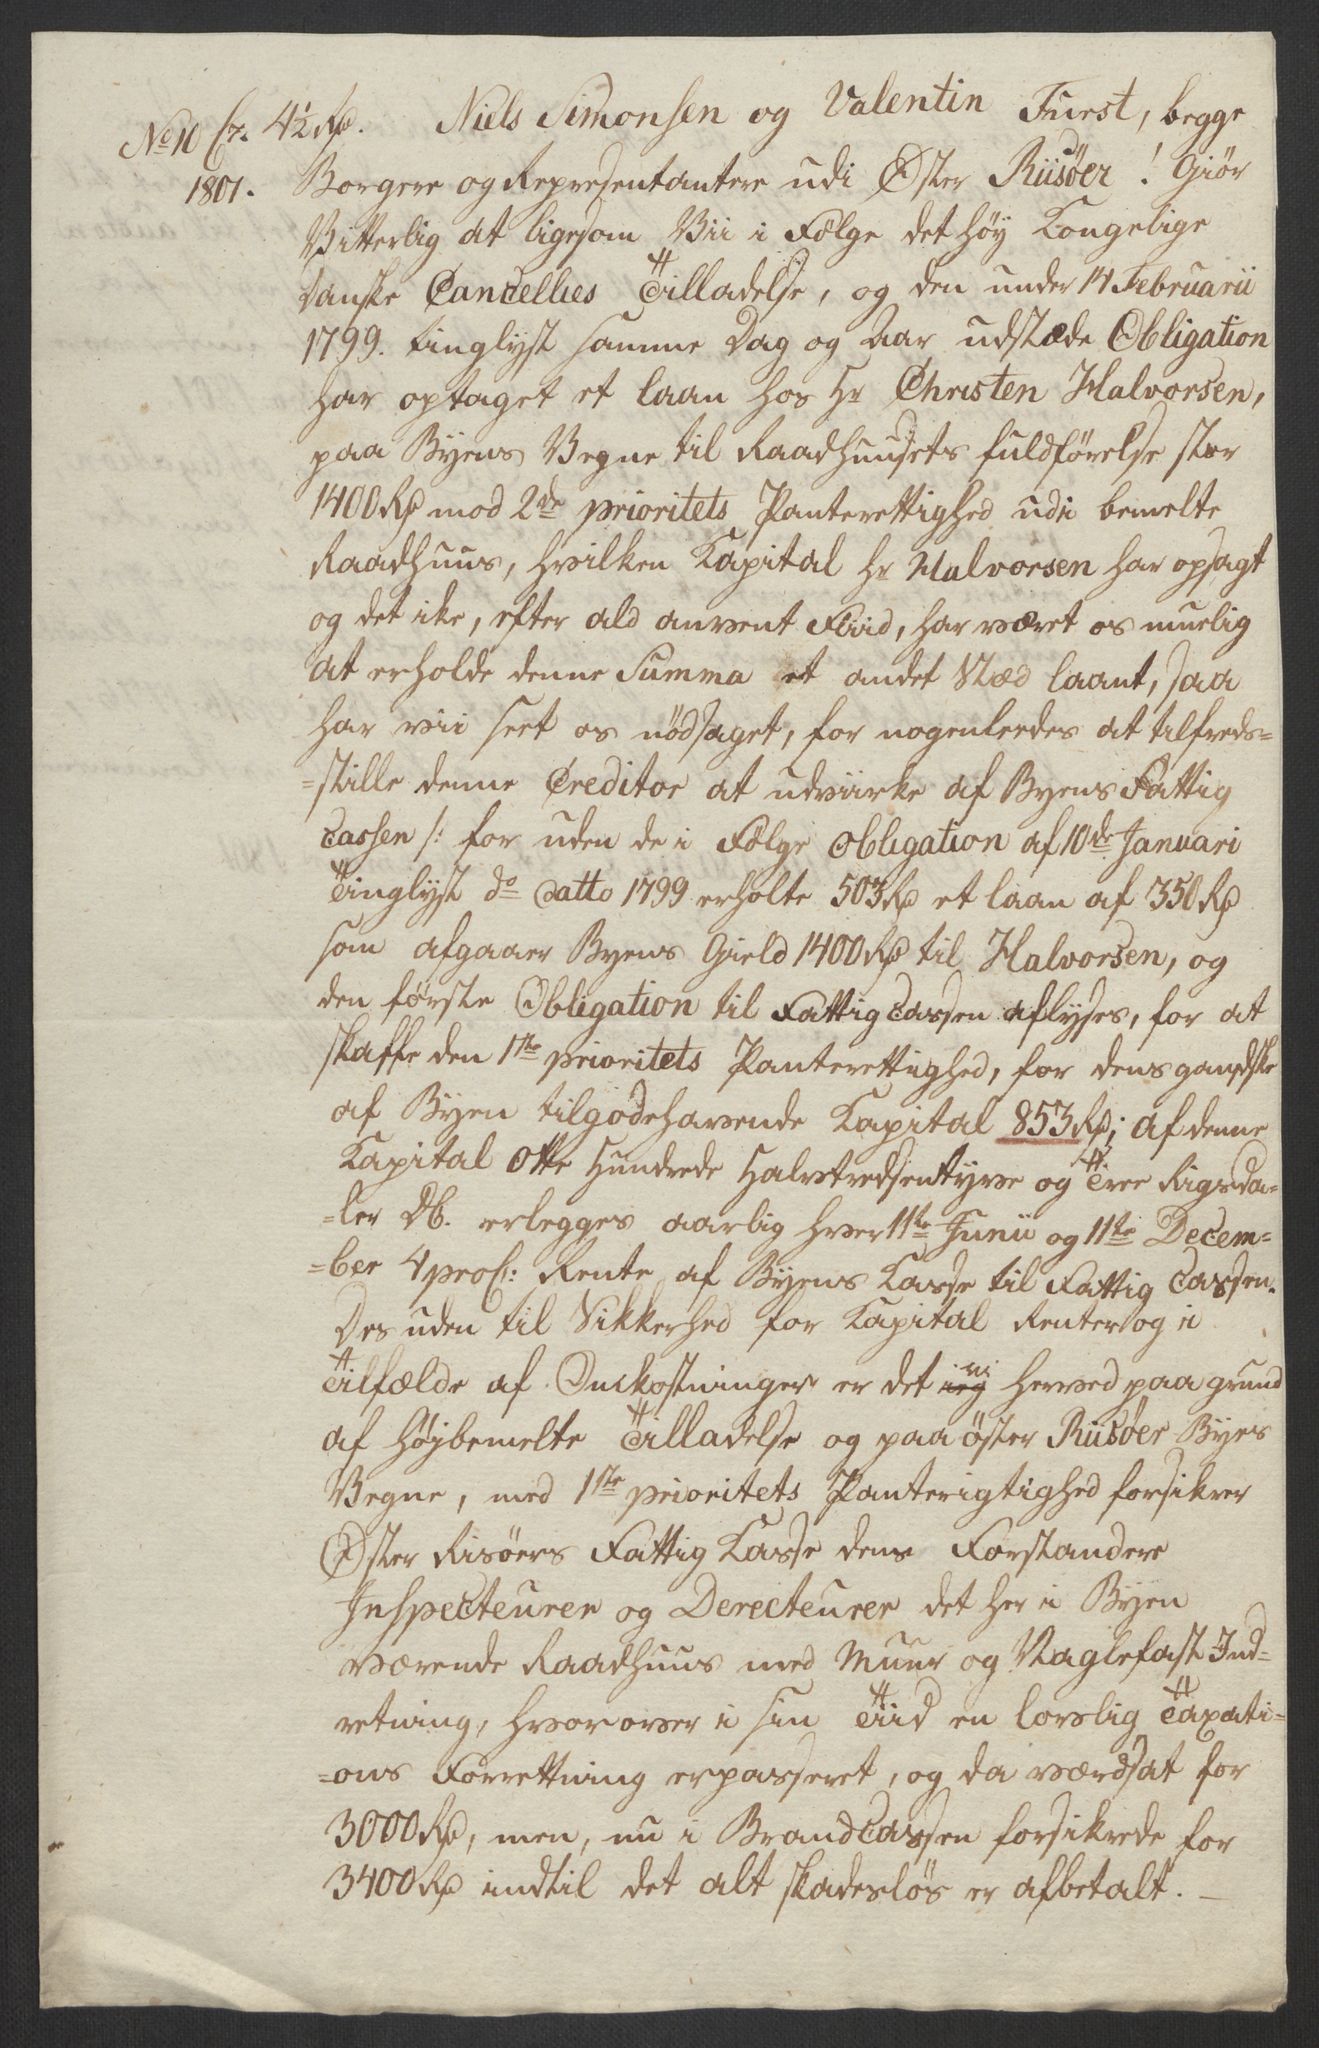 No 10 C7. 4½ Rd. Niels Simonsen og Valentin Furst, begge
1801. Borgere og Repræsentantere udi Øster Riisöer! Giör
Vitterlig at ligesom Vii i Følge det höy Kongelige
danske Cancellies Tilladelse, og den under 14 Februarii
1799. tinglyst samme Dag og Aar udstæde Obligation
har optaget et laan hos Hr Christen Halvorsen,
paa Byens Vegne til Raadhuusets fuldförelse stor
1400 Rd mod 2de prioritets Panterettighed udi bemelte
Raadhuus, hvilken Kapital hr Halvorsen har opsagt
og det ike, efter ald anvent Fliid, har været os muelig
at erholde denne Summa et andet Stæd laant, saa
har vii seet os nödsaget, for nogenleedes at tilfreds=
=stille denne Creditor at udviirke af Byens Fattig
Cassen /: for uden de i Følge Obligation af 10de Januari
Tinglyst do datto 1799 erholte 503 Rd et laan af 350 Rd
som afgaaer Byens Gield 1400 Rd til Halvorsen, og
den første Obligation til Fattig Cassen aflyses, for at
skaffe den 1ste prioritets Panterettighed, for dens gandske
af Byen tilgodehavende Kapital 853 Rd; af denne
Kapital Otte Hundrede Halvtredsentyve og Tree Rigsda=
=ler DC. erlegges aarlig hver 11te Junii og 11te Decem=
=ber 4 proC: Rente af Byens Kasse til Fattig Cassen.
Des uden til Sikkerhed for Kapital Renter og i
Tilfælde af Omkostninger er det ieg vi herved paa grund
af Højbemelte Tilladelse og paa öster Riisöer Byes
Vegne, med 1ste prioritets Panterigtighed forsikrer
Öster Risöers Fattig Kasse dens Forstandere
Inspecteurer og Derecteurer det her i Byen
værende Raadhuus med Muur og Naglefast Ind=
retning, hvorover i sin Tiid en lovlig Taxati=
=ons Forrettning er passeret, og da værdsat for
3000 Rd, men, nu i Brandcassen forsikrede for
3400 Rd indtil det alt skadeslös er afbetalt. —